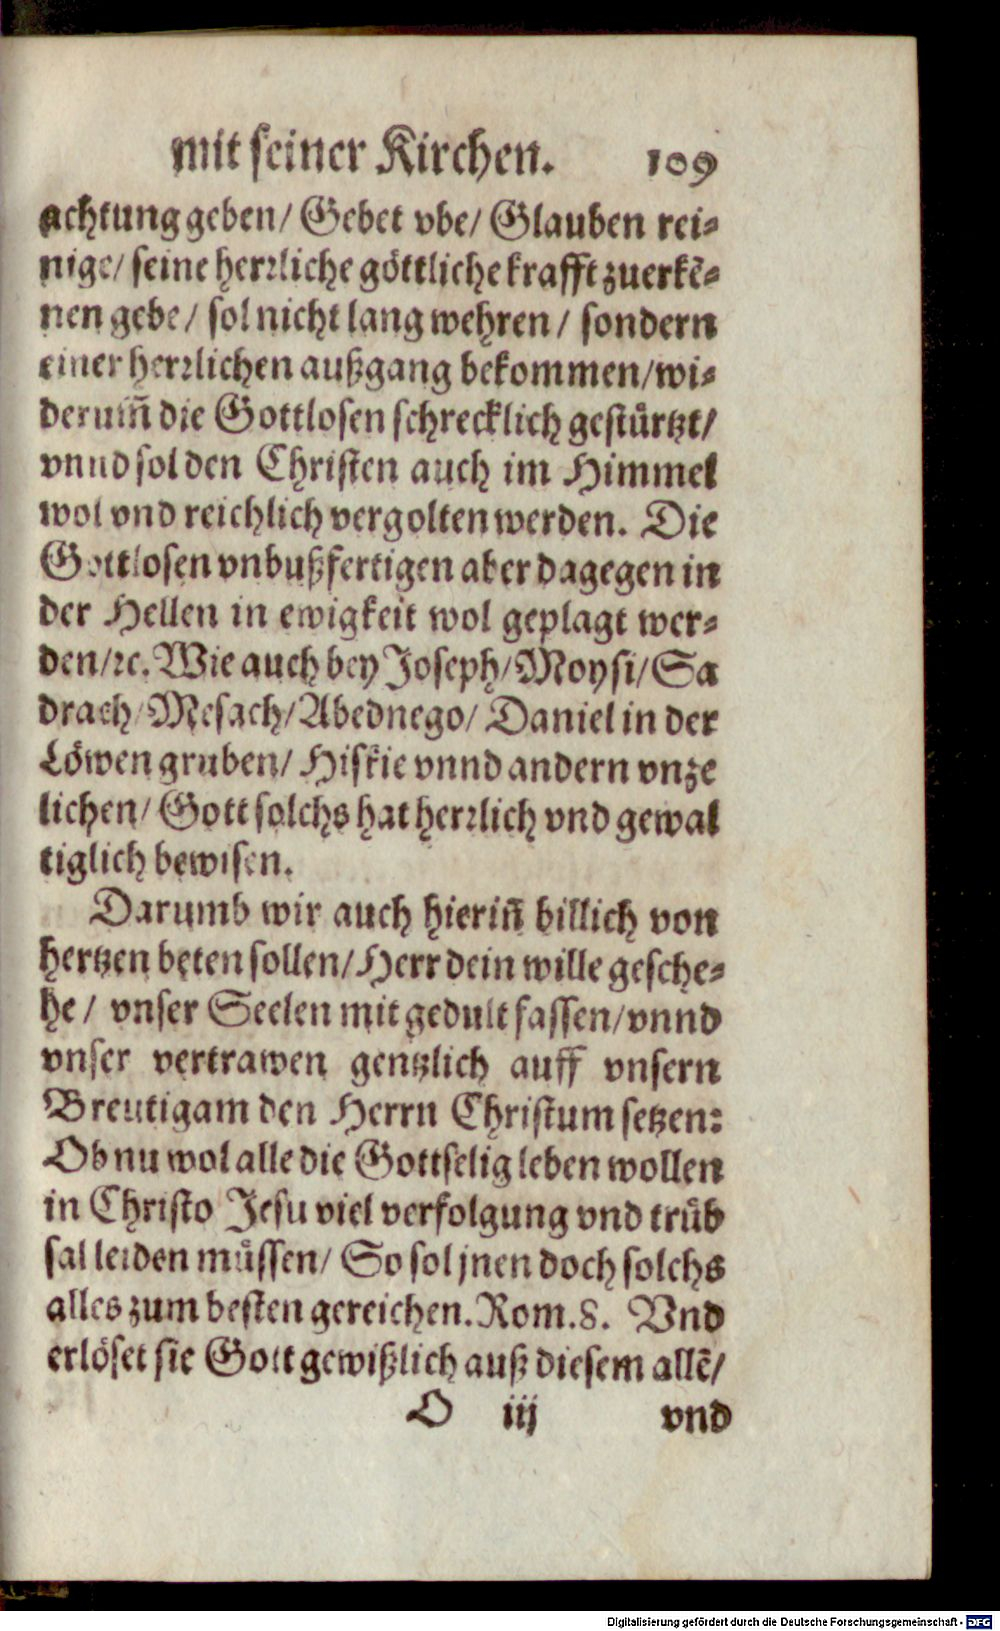 mit seiner Kirchen. 109
achtung geben/ Gebet vbe/ Glauben rei⸗
nige/ seine herꝛliche göttliche krafft zuerkē⸗
nen gebe/ sol nicht lang wehren/ sondern
einer herꝛlichen außgang bekommen/ wi⸗
derum̃ die Gottlosen schrecklich gestürtzt/
vnnd sol den Christen auch im Himmel
wol vnd reichlich vergolten werden. Die
Gottlosen vnbußfertigen aber dagegen in
der Hellen in ewigkeit wol geplagt wer⸗
den/ ꝛc. Wie auch bey Joseph/ Moysi/ Sa
drach/ Mesach/ Abednego/ Daniel in der
Löwen gruben/ Hiskie vnnd andern vnze
lichen/ Gott solchs hat herꝛlich vnd gewal
tiglich bewisen.
Darumb wir auch hierin̄ billich von
hertzen beten sollen/ Herr dein wille gesche⸗
he/ vnser Seelen mit gedult fassen/ vnnd
vnser vertrawen gentzlich auff vnsern
Breutigam den Herrn Christum setzen:
Ob nu wol alle die Gottselig leben wollen
in Christo Jesu viel verfolgung vnd trüb
sal leiden müssen/ So sol jnen doch solchs
alles zum besten gereichen. Rom. 8. Vnd
erlöset sie Gott gewißlich auß diesem allē/
O iij vnd
Digitalisierung gefördert durch die Deutsche Forschungsgemeinschaft - DFG